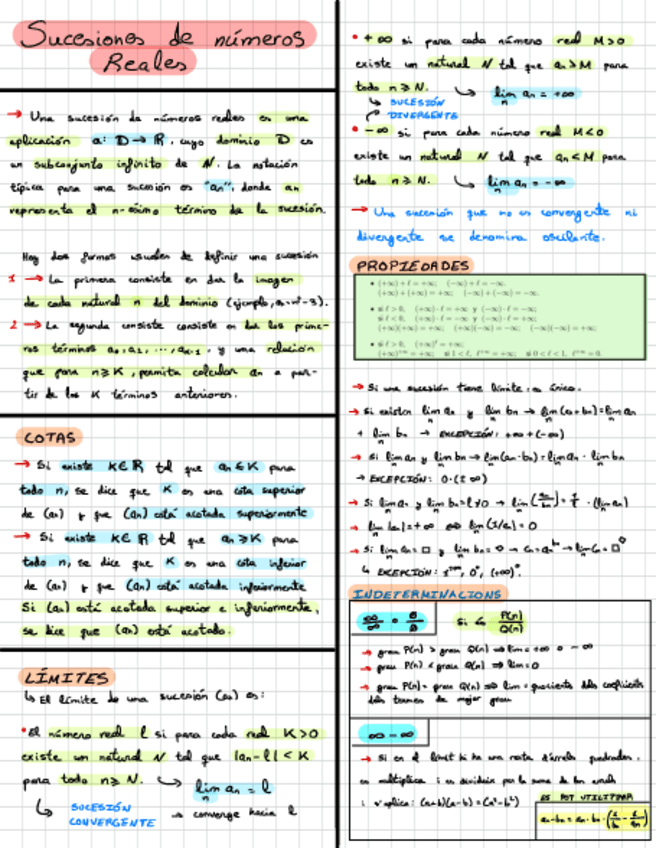 Sucesiones de números
Reales
→ Una sucesión de números reales es una
aplicación a: D → R, cuyo dominio D es
un subconjunto infinito de N. La notación
típica para una sucesión es "an", donde an
representa el n-ésimo término de la sucesión.
Hay dos formas usuales de definir una sucesión
1 → La primera consiste en dar la imagen
de cada natural n del dominio (ejemplo, an=n²-3).
2 → La segunda consiste consiste en dar los prime-
ros términos a0, a1, ..., ak-1, y una relación
que para n≥K, permita calcular an a par-
tir de los K términos anteriores.
COTAS
→ Si existe K∈R tal que an≤K para
todo n, se dice que K es una cota superior
de (an) y que (an) está acotada superiormente
→ Si existe K∈R tal que an≥K para
todo n, se dice que K es una cota inferior
de (an) y que (an) está acotada inferiormente
Si (an) está acotada superior e inferiormente,
se dice que (an) está acotada.
LÍMITES
↳ El límite de una sucesión (an) es:
• El número real l si para cada real K>0
existe un natural N tal que |an-l|<K
para todo n≥N. ↳ lim an = l
n
↳ SUCESIÓN
CONVERGENTE → converge hacia l
• +∞ si para cada número real M>0
existe un natural N tal que an>M para
todo n≥N. ↳ lim an = +∞
n
↳ SUCESIÓN
DIVERGENTE
• -∞ si para cada número real M<0
existe un natural N tal que an<M para
todo n≥N. ↳ lim an = -∞
n
→ Una sucesión que no es convergente ni
divergente se denomina oscilante.
PROPIEDADES
• (+∞)+l=+∞; (-∞)+l=-∞.
(+∞)+(+∞)=+∞; (-∞)+(-∞)=-∞.
• si l>0, (+∞)·l=+∞ y (-∞)·l=-∞;
si l<0, (+∞)·l=-∞ y (-∞)·l=+∞;
(+∞)(+∞)=+∞; (+∞)(-∞)=-∞; (-∞)(-∞)=+∞;
• si l>0, (+∞)^l=+∞;
→ Si una sucesión tiene límite, es único.
→ Si existen lim an y lim bn → lim(an+bn)=lim an
+ lim bn → EXCEPCIÓN: +∞+(-∞)
→ Si lim an y lim bn → lim(an·bn)=lim an · lim bn
→ EXCEPCIÓN: 0·(±∞)
→ lim |an|=+∞ ⇔ lim(1/an)=0
↳ EXCEPCIÓN: 1^±∞, 0^0, (+∞)^0.
INDETERMINACIONS
∞/∞ o 0/0 Si és P(n)/Q(n)
→ grau P(n) > grau Q(n) ⇒ lim = +∞ o -∞
→ grau P(n) < grau Q(n) ⇒ lim = 0
→ grau P(n) = grau Q(n) ⇒ lim = quocients dels coeficients
dels termes de major grau
∞-∞
→ Si en el límit hi ha una resta d'arrels quadrades,
es multiplica i es divideix per la suma de les arrels
i s'aplica: (a+b)(a-b)=(a²-b²)
ES POT UTILITZAR
an-bn = an·bn·(1/bn - 1/an)